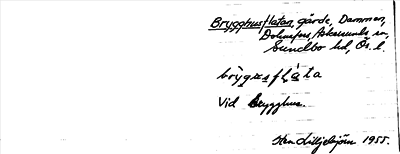 Brygghusflatan, gärde, Dammen,
Dohnafors, Askersunds sn,
Sundbo hd, Ör. l.
brỳgusflàta
Vid Brygghus.
Sten Liljebjörn 1955.